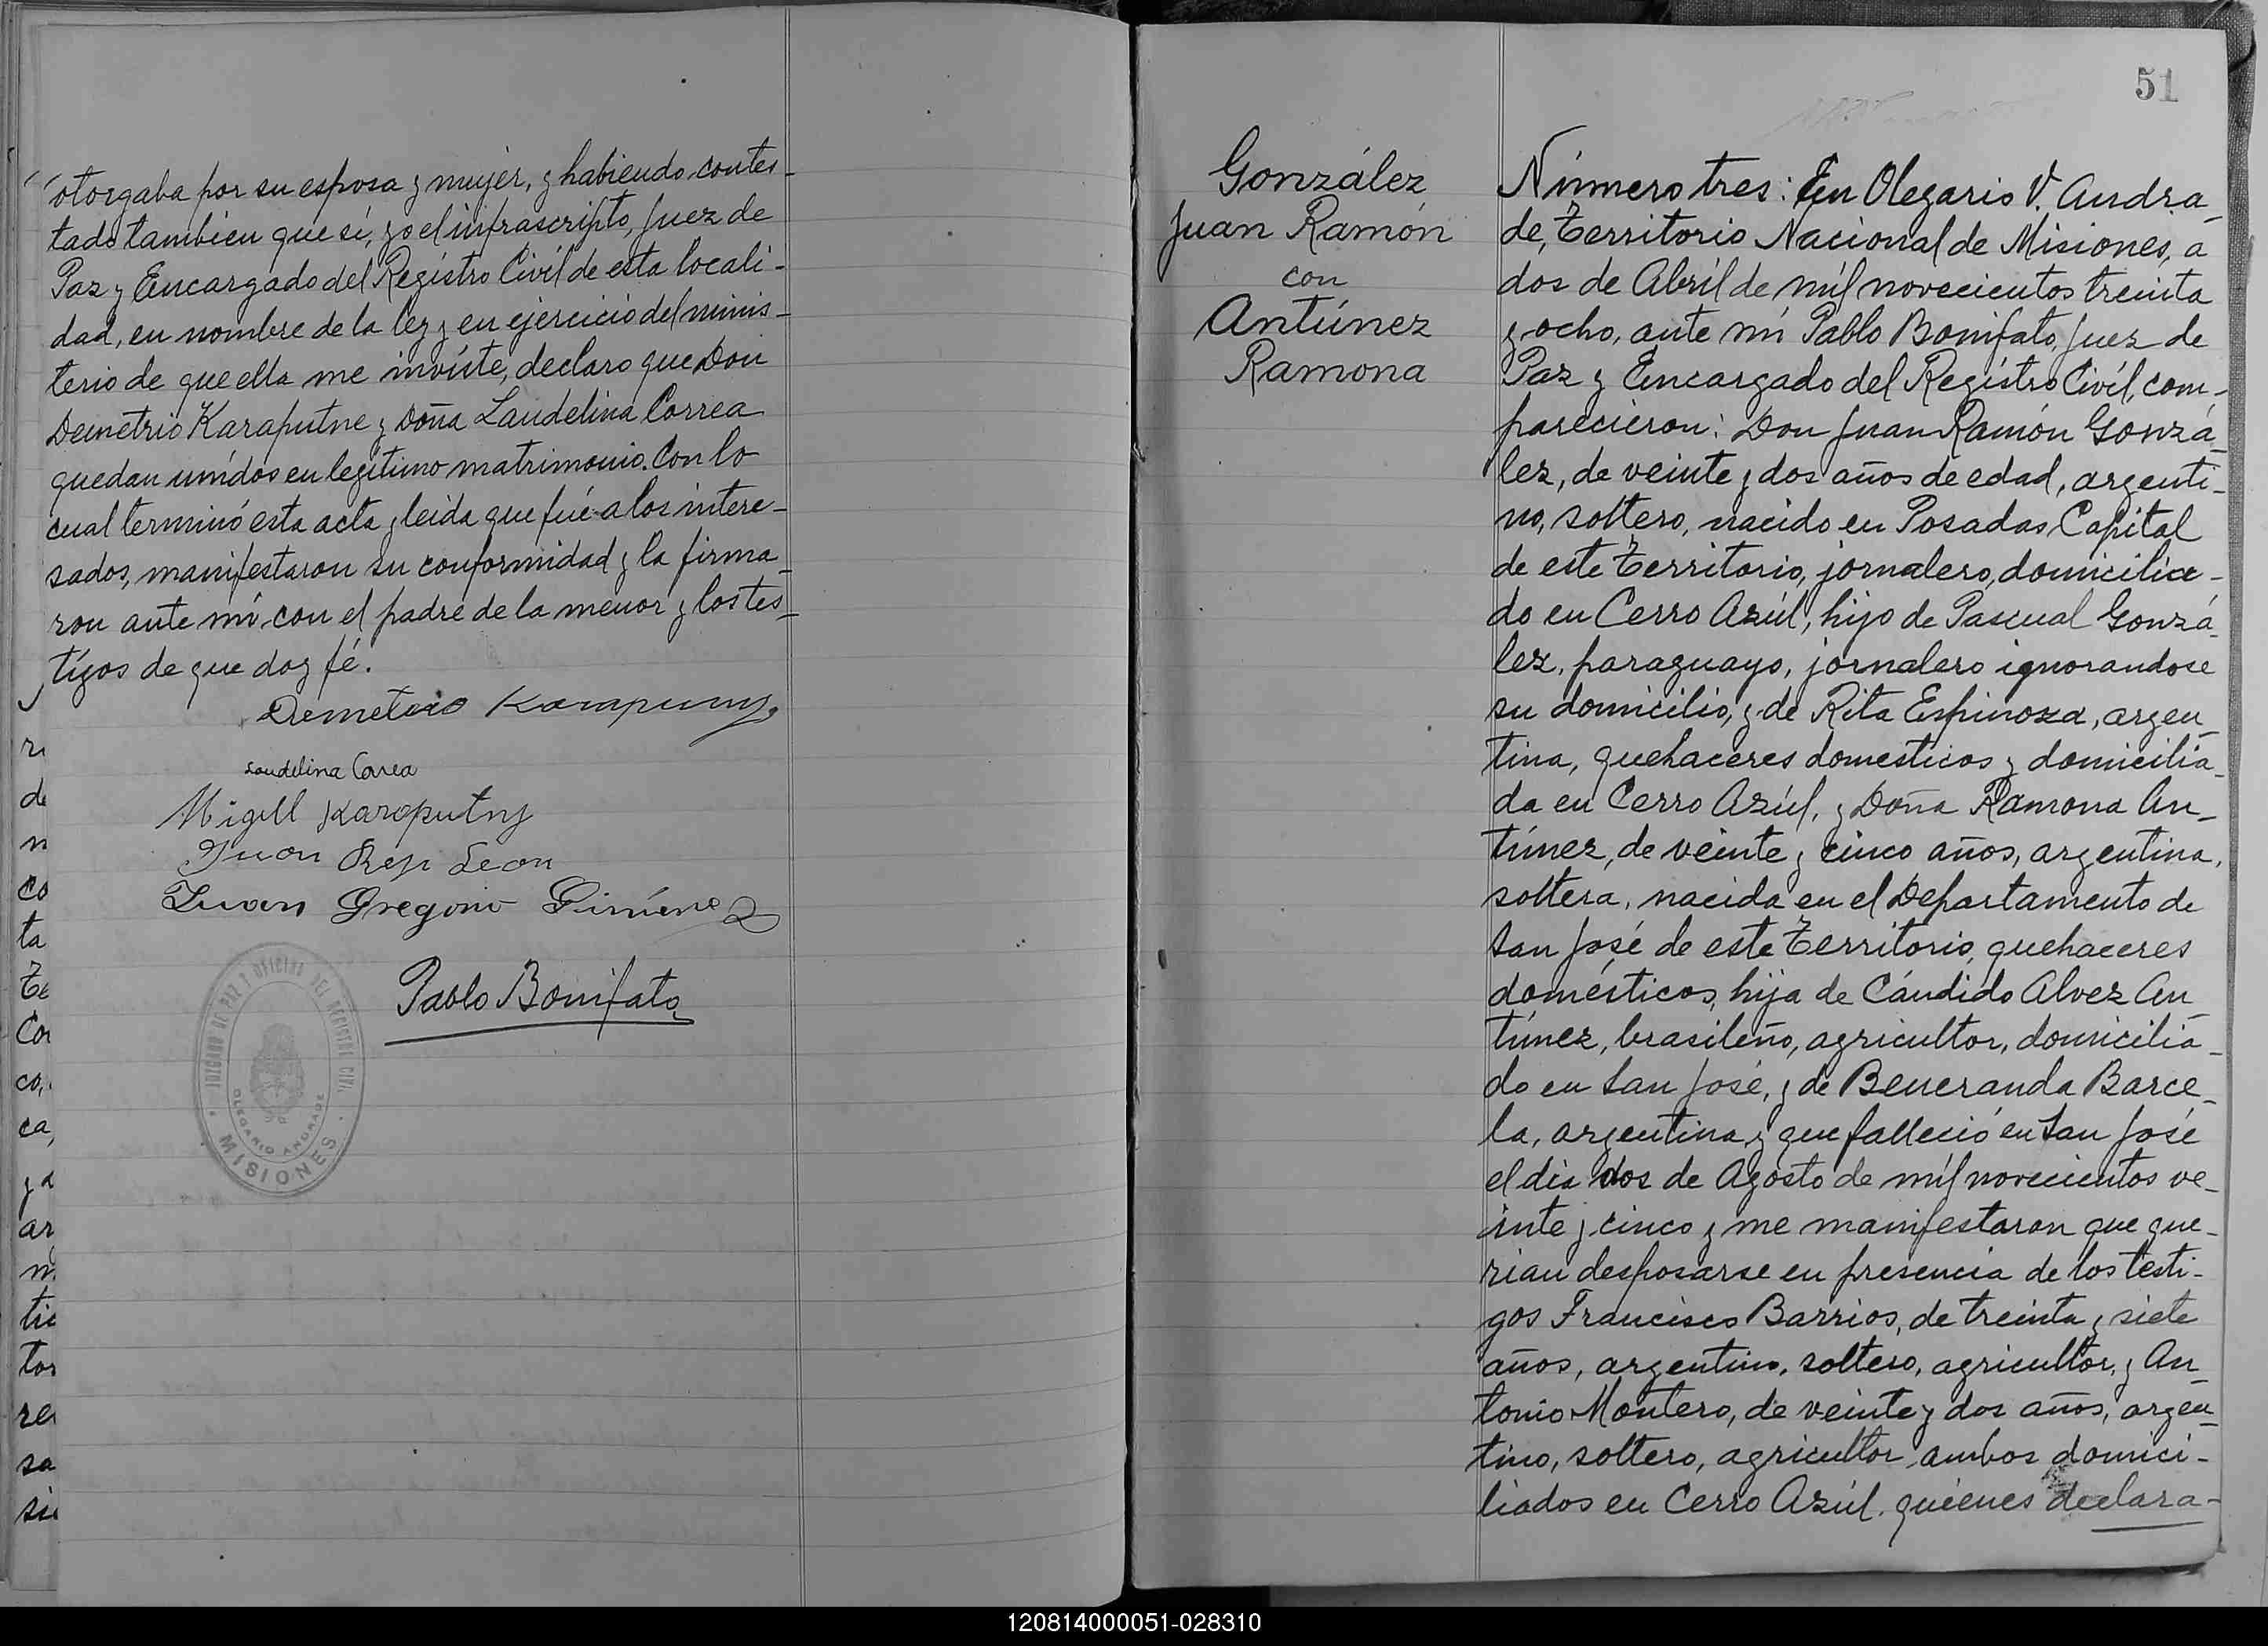 otorgaba por su esposa y mujer, y habiendo contes-
tado tambien que sí, yo el infrascripto, Juez de
Paz y Encargado del Registro Civil de esta locali-
dad, en nombre de la ley y en ejercicio del minis-
terio de que ella me inviste, declaro que Don
Demetrio Karaputne y Doña Laudelina Correa
quedan unidos en legítimo matrimonio. Con lo
cual terminó esta acta y leida que fué a los intere-
sados, manifestaron su conformidad y la firma-
ron ante mí con el padre de la menor y los tes-
tigos de que doy fé.
Demetrio
Laudelina Correa
Migell Karaputny
Juan Leon
Juan Gregorio Giménez
Pablo Bonifato
JUZGADO DE PAZ Y OFICINA DEL REGISTRO CIVIL
OLEGARIO ANDRADE
MISIONES
51
González
Juan Ramón
con
Antúnez
Ramona
Número tres: En Olegario V. Andra-
de, Territorio Nacional de Misiones, a
dos de Abril de mil novecientos treinta
y ocho, ante mí Pablo Bonifato, Juez de
Paz y Encargado del Registro Civil, com-
parecieron: Don Juan Ramón Gonzá-
lez, de veinte y dos años de edad, argenti-
no, soltero, nacido en Posadas Capital
de este Territorio, jornalero, domicilia-
do en Cerro Azúl, hijo de Pascual Gonzá-
lez, paraguayo, jornalero ignorandose
su domicilio, y de Rita Espinoza, argen-
tina, quehaceres domesticos y domicilia-
da en Cerro Azúl, y Doña Ramona An-
túnez, de veinte y cinco años, argentina,
soltera, nacida en el Departamento de
San José de este Territorio, quehaceres
domésticos, hija de Cándido Alvez An-
túnez, brasileño, agricultor, domicilia-
do en San José, y de Beneranda Barce-
la, argentina y que falleció en San José
el dia dos de Agosto de mil novecientos ve-
inte y cinco y me manifestaron que que-
rian desposarse en presencia de los testi-
gos Francisco Barrios, de treinta y siete
años, argentino, soltero, agricultor, y An-
tonio Montero, de veinte y dos años, argen-
tino, soltero, agricultor, ambos domici-
liados en Cerro Azúl. quienes declara-
120814000051-028310